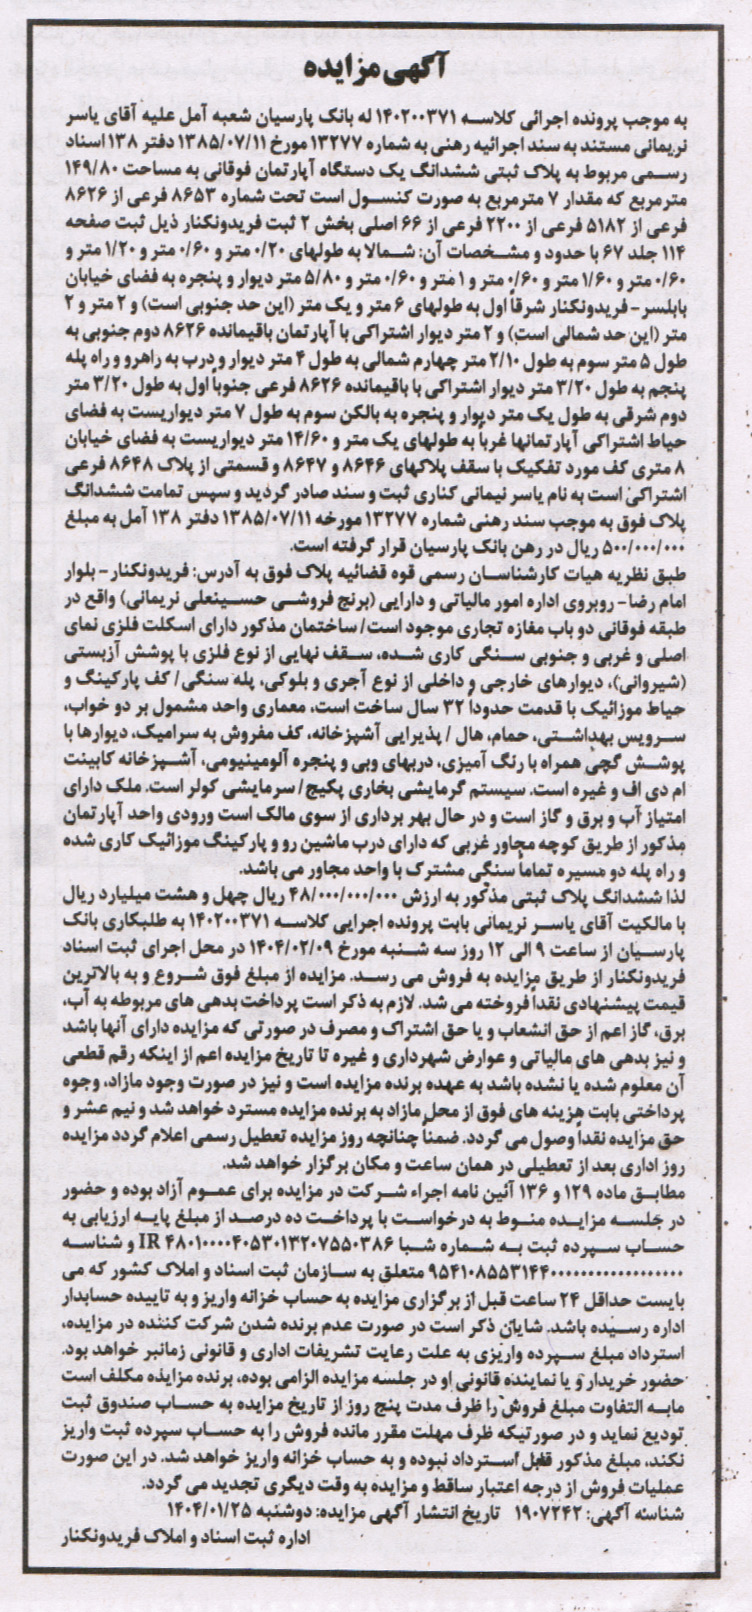 آگهی مزایده
به موجب پرونده اجرائی کلاسه ۱۴۰۲۰۰۳۷۱ له بانک پارسیان شعبه آمل علیه آقای یاسر
نریمانی مستند به سند اجرائیه رهنی به شماره ۱۳۲۷۷ مورخ ۱۳۸۵/۰۷/۱۱ دفتر ۱۳۸ اسناد
رسمی مربوط به پلاک ثبتی ششدانگ یک دستگاه آپارتمان فوقانی به مساحت ۱۴۹/۸۰
مترمربع که مقدار ۷ مترمربع به صورت کنسول است تحت شماره ۸۶۵۳ فرعی از ۸۶۲۶
فرعی از ۵۱۸۲ فرعی از ۲۲۰۰ فرعی از ۶۶ اصلی بخش ۲ ثبت فریدونکنار ذیل ثبت صفحه
۱۱۴ جلد ۶۷ با حدود و مشخصات آن: شمالا به طولهای ۰/۲۰ متر و ۰/۶۰ متر و ۱/۲۰ متر و
۰/۶۰ متر و ۱/۶۰ متر و ۰/۶۰ متر و ۱ متر و ۰/۶۰ متر و ۵/۸۰ متر دیوار و پنجره به فضای خیابان
بابلسر- فریدونکنار شرقاً اول به طولهای ۶ متر و یک متر (این حد جنوبی است) و ۲ متر و ۲
متر (این حد شمالی است) و ۲ متر دیوار اشتراکی با آپارتمان باقیمانده ۸۶۲۶ دوم جنوبی به
طول ۵ متر سوم به طول ۲/۱۰ متر چهارم شمالی به طول ۴ متر دیوار و درب به راهرو و راه پله
پنجم به طول ۳/۲۰ متر دیوار اشتراکی با باقیمانده ۸۶۲۶ فرعی جنوباً اول به طول ۳/۲۰ متر
دوم شرقی به طول یک متر دیوار و پنجره به بالکن سوم به طول ۷ متر دیواریست به فضای
حیاط اشتراکی آپارتمانها غرباً به طولهای یک متر و ۱۴/۶۰ متر دیواریست به فضای خیابان
۸ متری کف مورد تفکیک با سقف پلاکهای ۸۶۴۶ و ۸۶۴۷ و قسمتی از پلاک ۸۶۴۸ فرعی
اشتراکی است به نام یاسر نیمانی کناری ثبت و سند صادر گردید و سپس تمامت ششدانگ
پلاک فوق به موجب سند رهنی شماره ۱۳۲۷۷ مورخه ۱۳۸۵/۰۷/۱۱ دفتر ۱۳۸ آمل به مبلغ
۵۰۰/۰۰۰/۰۰۰ ریال در رهن بانک پارسیان قرار گرفته است.
طبق نظریه هیات کارشناسان رسمی قوه قضائیه پلاک فوق به آدرس: فریدونکنار- بلوار
امام رضا- روبروی اداره امور مالیاتی و دارایی (برنج فروشی حسینعلی نریمانی) واقع در
طبقه فوقانی دو باب مغازه تجاری موجود است/ ساختمان مذکور دارای اسکلت فلزی نمای
اصلی و غربی و جنوبی سنگی کاری شده، سقف نهایی از نوع فلزی با پوشش آزبستی
(شیروانی)، دیوارهای خارجی و داخلی از نوع آجری و بلوکی، پله سنگی/ کف پارکینگ و
حیاط موزائیک با قدمت حدوداً ۳۲ سال ساخت است، معماری واحد مشمول بر دو خواب،
سرویس بهداشتی، حمام، هال / پذیرایی آشپزخانه، کف مفروش به سرامیک، دیوارها با
پوشش گچی همراه با رنگ آمیزی، دربهای وبی و پنجره آلومینیومی، آشپزخانه کابینت
ام دی اف و غیره است. سیستم گرمایشی بخاری پکیج/ سرمایشی کولر است. ملک دارای
امتیاز آب و برق و گاز است و در حال بهر برداری از سوی مالک است ورودی واحد آپارتمان
مذکور از طریق کوچه مجاور غربی که دارای درب ماشین رو و پارکینگ موزائیک کاری شده
و راه پله دو مسیره تماماً سنگی مشترک با واحد مجاور می باشد.
لذا ششدانگ پلاک ثبتی مذکور به ارزش ۴۸/۰۰۰/۰۰۰/۰۰۰ ریال چهل و هشت میلیارد ریال
با مالکیت آقای یاسر نریمانی بابت پرونده اجرایی کلاسه ۱۴۰۲۰۰۳۷۱ به طلبکاری بانک
پارسیان از ساعت ۹ الی ۱۲ روز سه شنبه مورخ ۱۴۰۴/۰۲/۰۹ در محل اجرای ثبت اسناد
فریدونکنار از طریق مزایده به فروش می رسد. مزایده از مبلغ فوق شروع و به بالاترین
قیمت پیشنهادی نقداً فروخته می شد. لازم به ذکر است پرداخت بدهی های مربوطه به آب،
برق، گاز اعم از حق انشعاب و یا حق اشتراک و مصرف در صورتی که مزایده دارای آنها باشد
و نیز بدهی های مالیاتی و عوارض شهرداری و غیره تا تاریخ مزایده اعم از اینکه رقم قطعی
آن معلوم شده یا نشده باشد به عهده برنده مزایده است و نیز در صورت وجود مازاد، وجوه
پرداختی بابت هزینه های فوق از محل مازاد به برنده مزایده مسترد خواهد شد و نیم عشر و
حق مزایده نقداً وصول می گردد. ضمناً چنانچه روز مزایده تعطیل رسمی اعلام گردد مزایده
روز اداری بعد از تعطیلی در همان ساعت و مکان برگزار خواهد شد.
مطابق ماده ۱۲۹ و ۱۳۶ آئین نامه اجراء شرکت در مزایده برای عموم آزاد بوده و حضور
در جلسه مزایده منوط به درخواست با پرداخت ده درصد از مبلغ پایه ارزیابی به
حساب سپرده ثبت به شماره شبا IR ۴۸۰۱۰۰۰۰۴۰۵۳۰۱۳۲۰۷۵۵۰۳۸۶ و شناسه
متعلق به سازمان ثبت اسناد و املاک کشور که می
بایست حداقل ۲۴ ساعت قبل از برگزاری مزایده به حساب خزانه واریز و به تاییده حسابدار
اداره رسیده باشد. شایان ذکر است در صورت عدم برنده شدن شرکت کننده در مزایده،
استرداد مبلغ سپرده واریزی به علت رعایت تشریفات اداری و قانونی زمانبر خواهد بود.
حضور خریدار و یا نماینده قانونی او در جلسه مزایده الزامی بوده، برنده مزایده مکلف است
مابه التفاوت مبلغ فروش را ظرف مدت پنج روز از تاریخ مزایده به حساب صندوق ثبت
تودیع نماید و در صورتیکه ظرف مهلت مقرر مانده فروش را به حساب سپرده ثبت واریز
نکند، مبلغ مذکور قابل استرداد نبوده و به حساب خزانه واریز خواهد شد. در این صورت
عملیات فروش از درجه اعتبار ساقط و مزایده به وقت دیگری تجدید می گردد.
شناسه آگهی: ۱۹۰۷۲۴۲ تاریخ انتشار آگهی مزایده: دوشنبه ۱۴۰۴/۰۱/۲۵
اداره ثبت اسناد و املاک فریدونکنار